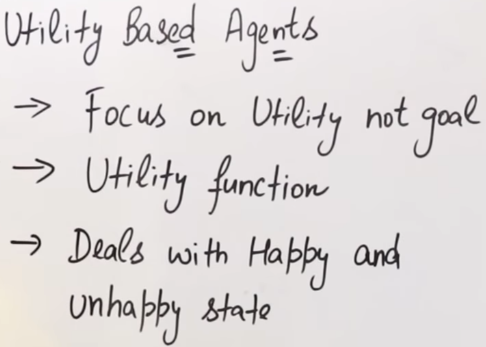 Utility Based Agents
→ Focus on Utility not goal
→ Utility function
→ Deals with Happy and
unhappy state